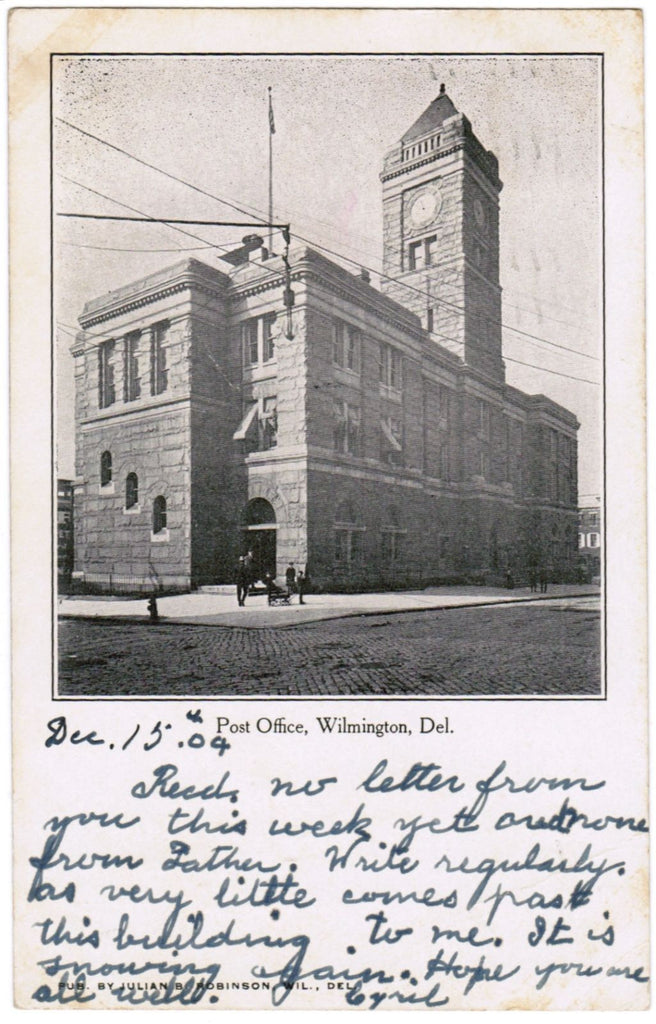 Post Office, Wilmington, Del.
Dec. 15.th 04
Recd. no letter from
you this week yet and none
from Father. Write regularly.
as very little comes past
this building to me. It is
snowing again. Hope you are
all well. Cyril
PUB. BY JULIAN B. ROBINSON, WIL., DEL.